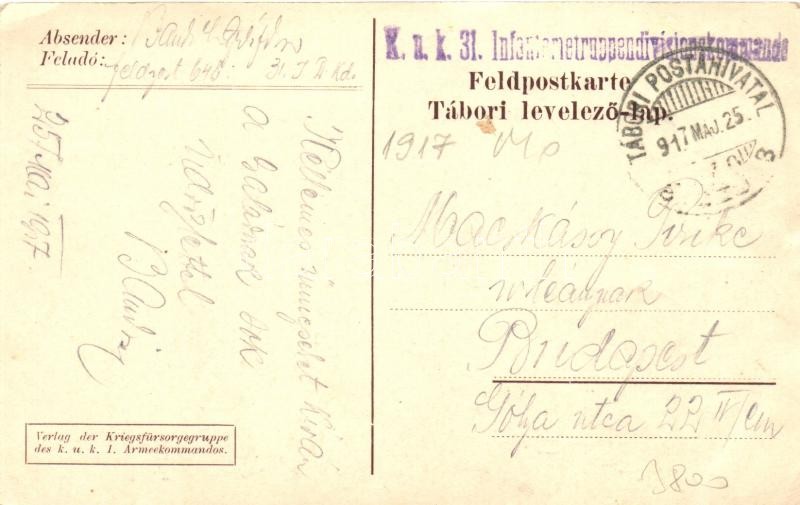 Absender:
Feladó:
Feldpost 648. 31. I. D. Kd.
25/Mai 1917.
Kellemes ünnepeket kíván
a
sok
üdvözlettel
Bandi
Verlag der Kriegsfürsorgegruppe
des k. u. k. 1. Armeekommandos.
K. u. k. 31. Infanterietruppendivisionskommando
Feldpostkarte
Tábori levelező-lap.
TÁBORI POSTAHIVATAL
917 MAJ. 25.
1917
Macskásy
Budapest
Gólya utca 22 IV/em
3800